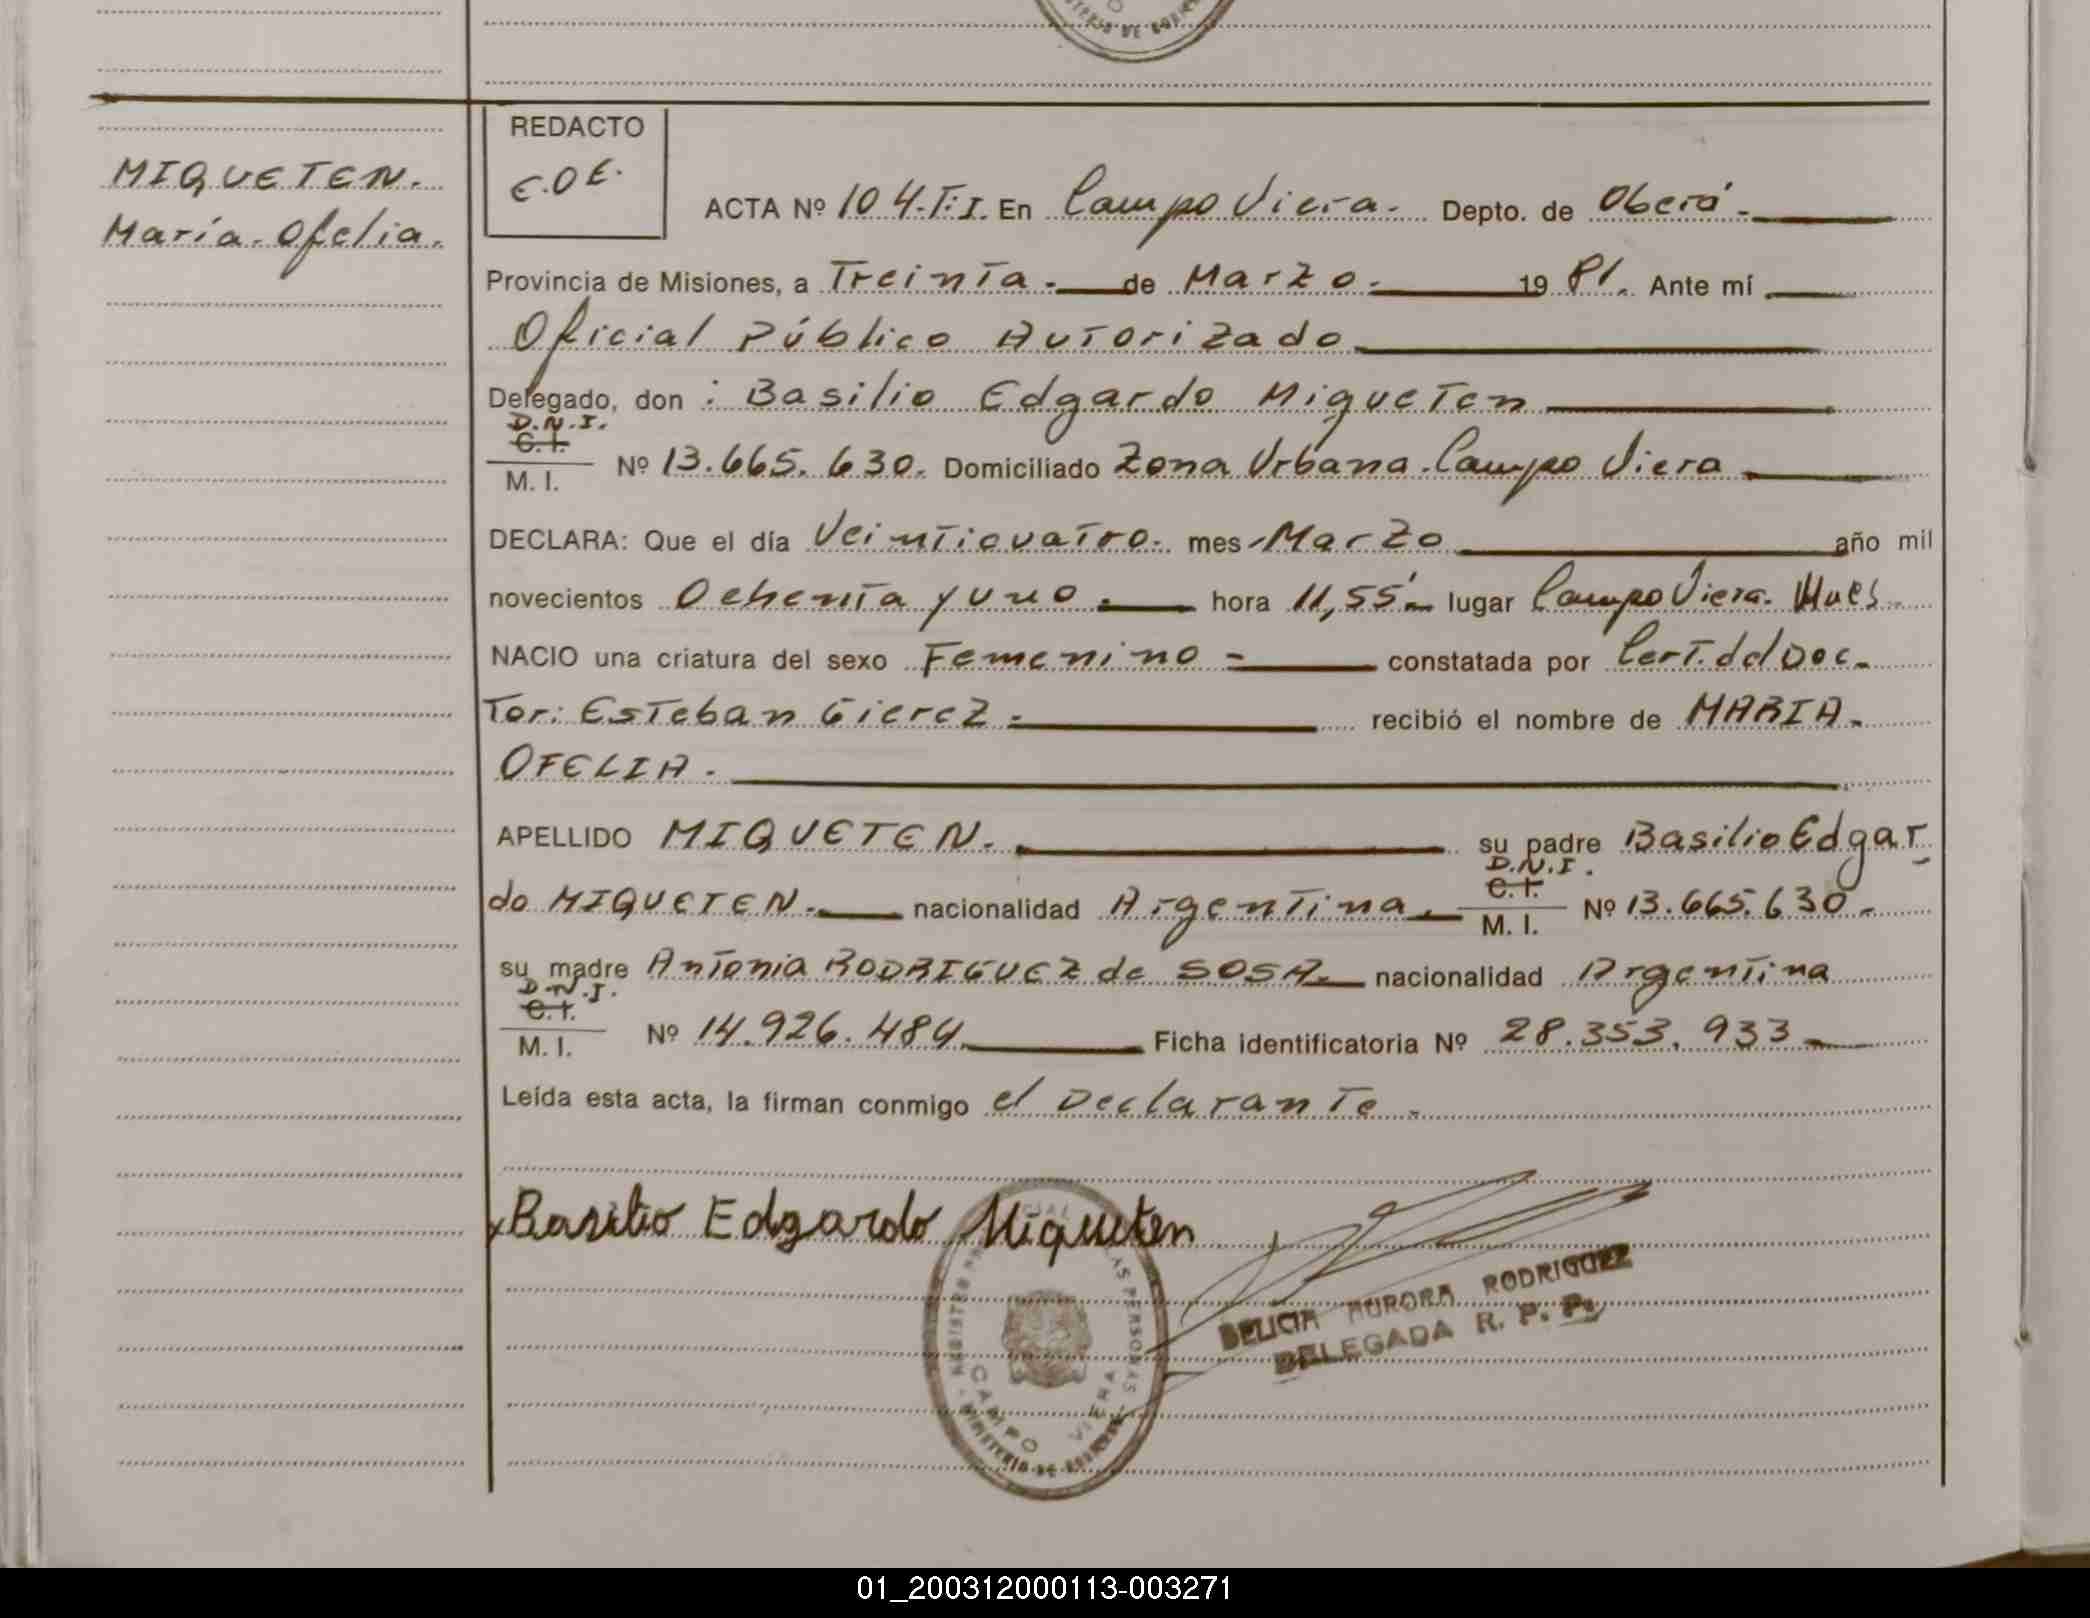 MIQUETEN.
María. Ofelia.
REDACTO
E.O.E.
ACTA Nº 104.T:I. En Campo Viera. Depto. de Oberá.
Provincia de Misiones, a Treinta. de Marzo. 19 81. Ante mí
Oficial Público Autorizado
Delegado, don : Basilio Edgardo Miqueten
D.N.I.
C.I.
M. I. Nº 13.665.630. Domiciliado Zona Urbana. Campo Viera
DECLARA: Que el día Veinticuatro. mes Marzo año mil
novecientos Ochenta y uno. hora 11,55´ lugar Campo Viera.
NACIO una criatura del sexo Femenino constatada por Cert. del Doc-
tor: Esteban Gierez recibió el nombre de MARIA
OFELIA.
APELLIDO MIQUETEN. su padre Basilio Edgar
do MIQUETEN. nacionalidad Argentina
D.N.I.
C.I.
M. I. Nº 13.665.630.
su madre Antonia RODRIGUEZ de SOSA. nacionalidad Argentina
D.N.I.
C.I.
M. I. Nº 14.926.484 Ficha identificatoria Nº 28.353.933
Leída esta acta, la firman conmigo el Declarante.
x Basilio Edgardo Miqueten
CAMPO VIERA
DELICIA AURORA RODRIGUEZ
DELEGADA R. P. P.
01_200312000113-003271